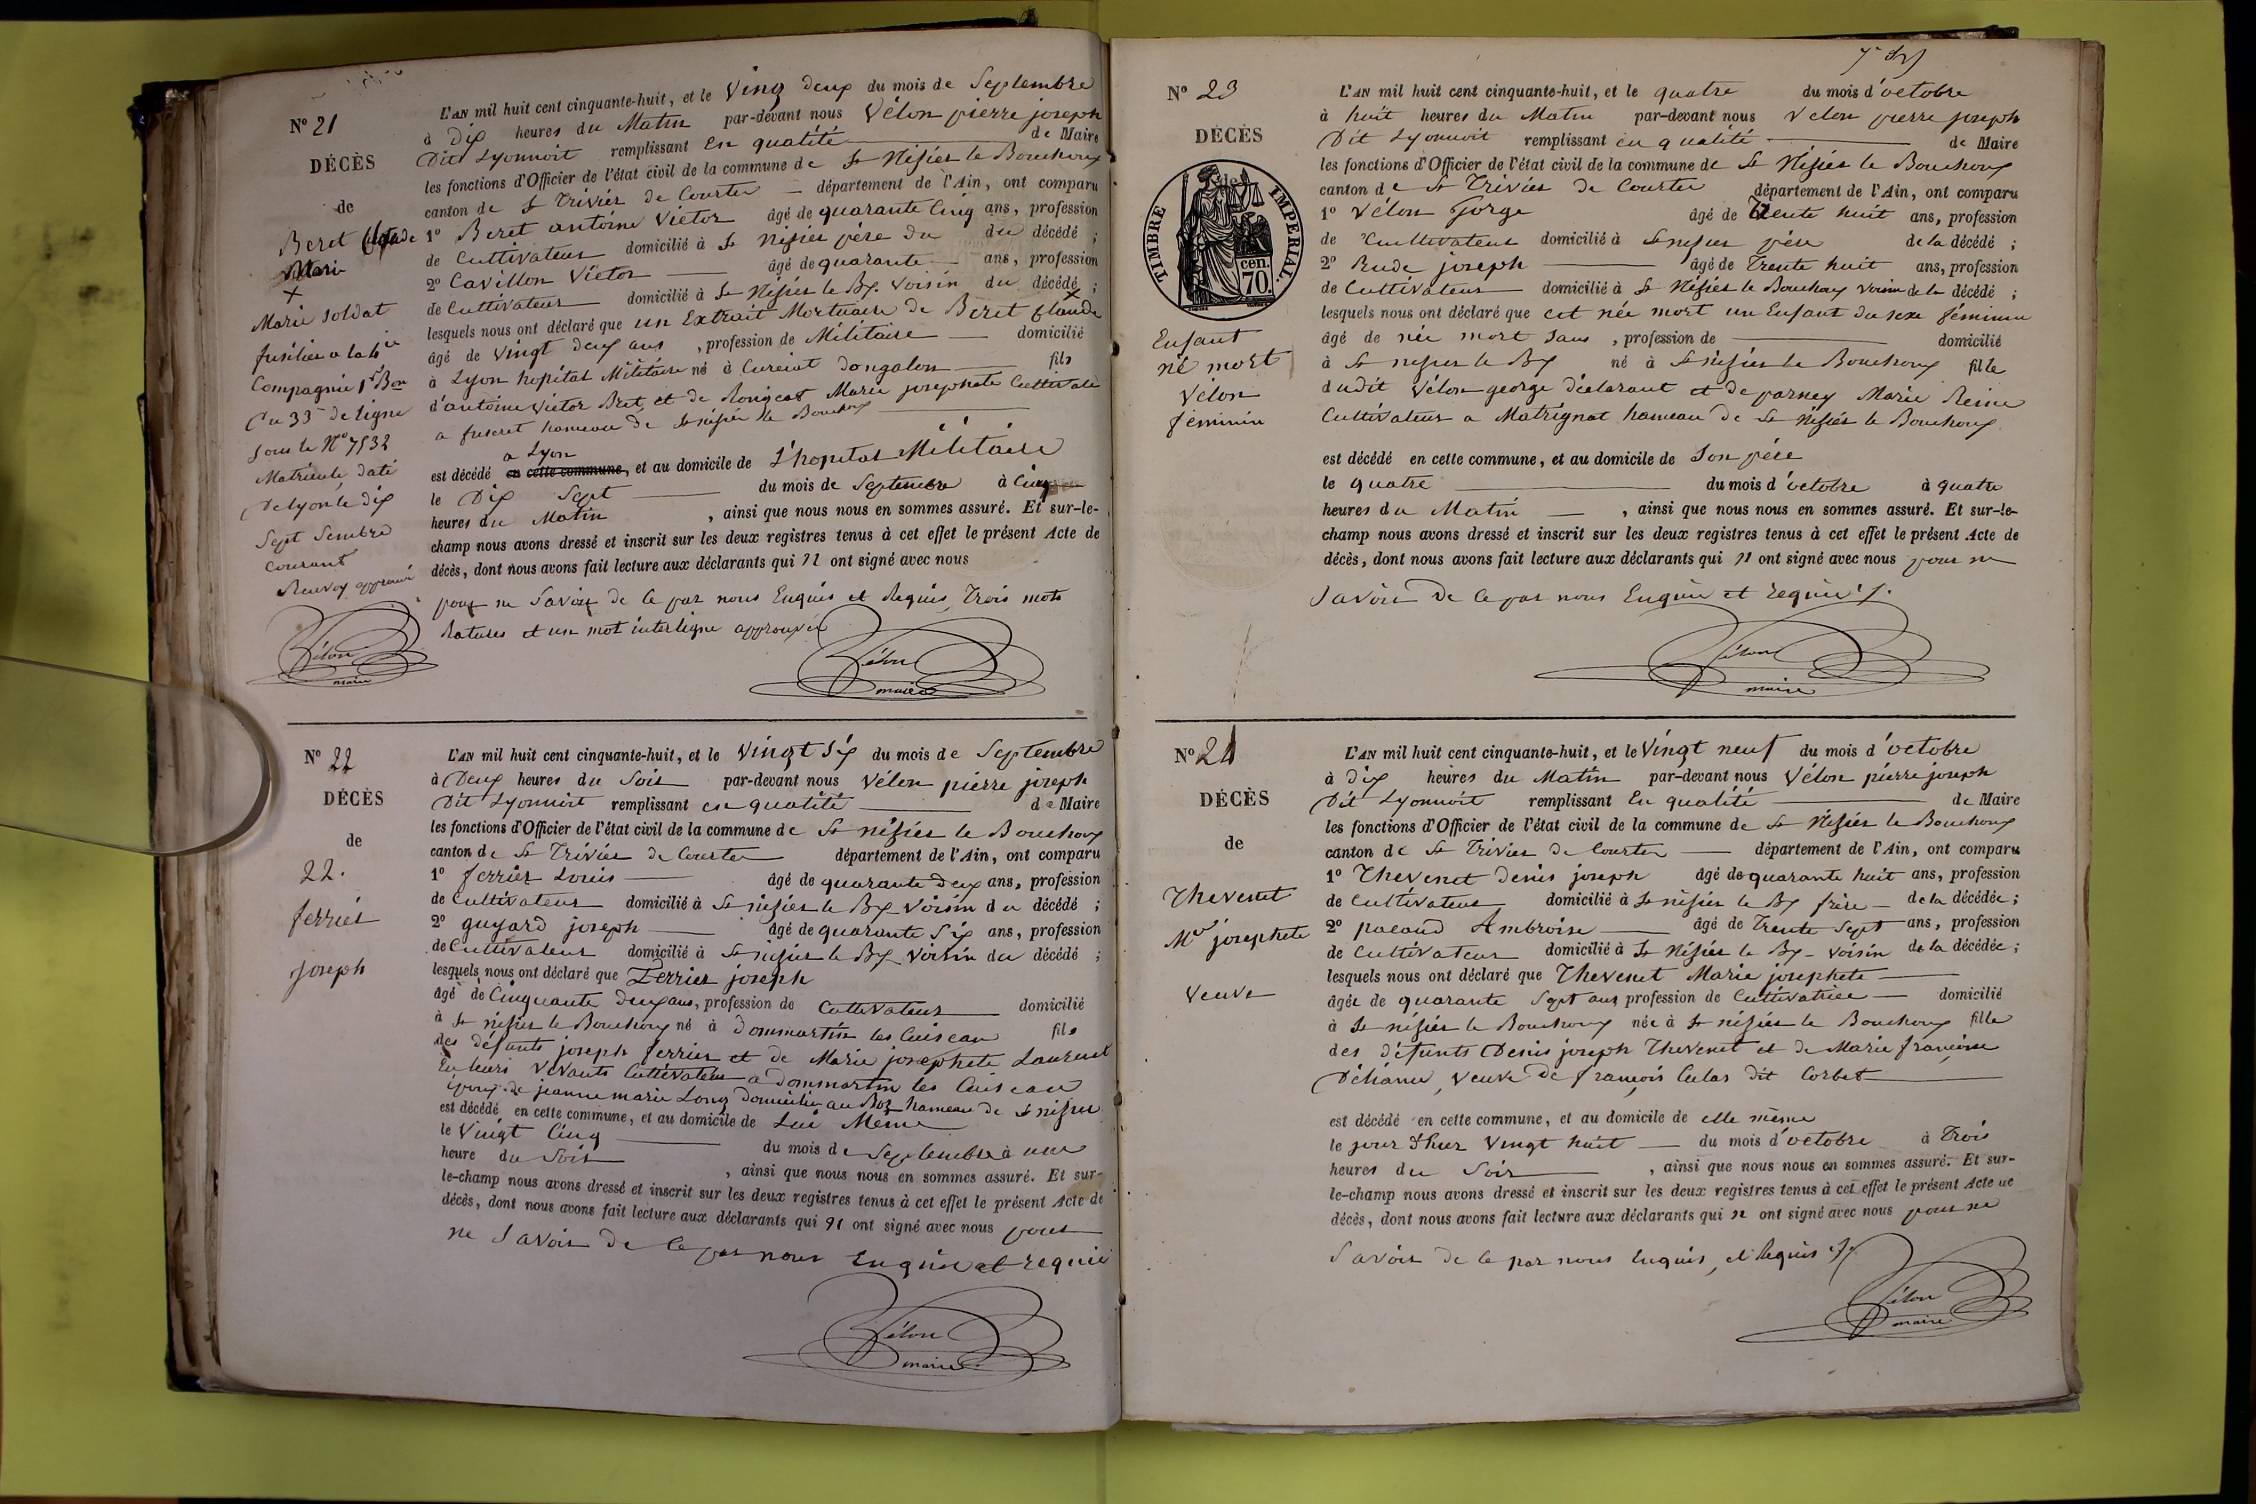 N° 21
DÉCÈS
de
Beret Claude
Marie
+
Marie soldat
fusilier a la 4ie
Compagnie 1r Bon
Du 33e de ligne
sous le N° 7532
Matricule, daté
De Lyon le dix
Sept Sembre
courant
Renvoy approuvé
Vélon
maire
L'AN mil huit cent cinquante-huit, et le Vingt deux du mois de Septembre
à Dix heures du Matin par-devant nous Vélon pierre joseph
Dit Lyonnoit remplissant en qualité de Maire
les fonctions d'Officier de l'état civil de la commune de St Nisier le Bouchoux
canton de St Trivier de Courtes département de l'Ain, ont comparu
1° Beret antoine Victor âgé de quarante Cinq ans, profession
de Cultivateur domicilié à St Nisier père du du décédé ;
2° Cavillon Victor âgé de quarante ans, profession
de Cultivateur domicilié à St Nisier le Bx. Voisin du décédé ;
lesquels nous ont déclaré que un Extrait Mortuaire de Beret Claude
âgé de Vingt deux ans , profession de Militaire domicilié
à Lyon hopital Militaire né à Cuisiat dongalon fils
d'antoine Victor Bret et de Rongeat Marie josephete Cultivate
a fuseret hameau de St nisier le Bouchoux
a Lyon
est décédé en cette commune, et au domicile de L'hopital Militaire
le Dix Sept du mois de Septembre à Cinq
heures du Matin , ainsi que nous nous en sommes assuré. Et sur-le-
champ nous avons dressé et inscrit sur les deux registres tenus à cet effet le présent Acte de
décès, dont nous avons fait lecture aux déclarants qui n ont signé avec nous
pour ne Savoir de ce par nous Enquis et Requis, Trois mots
Ratures et un mot interligne approuvé
Vélon
maire
N° 22
DÉCÈS
de
22.
ferrier
joseph
L'AN mil huit cent cinquante-huit, et le Vingt Six du mois de Septembre
à Deux heures du Soir par-devant nous Vélon pierre joseph
Dit Lyonnoit remplissant en qualité de Maire
les fonctions d'Officier de l'état civil de la commune de St nisier le Bouchoux
canton de St Trivier de Courtes département de l'Ain, ont comparu
1° ferrier Louis âgé de quarante deux ans, profession
de Cultivateur domicilié à St nisier le Bx Voisin du décédé ;
2° guyard joseph âgé de quarante Six ans, profession
de Cultivateur domicilié à St nisier le Bx Voisin du décédé ;
lesquels nous ont déclaré que Ferrier joseph
âgé de Cinquante deux ans, profession de Cultivateur domicilié
à St nisier le Bouchoux né à Dommartin les Cuiseau fils
des défunts joseph ferrier et de Marie josephete Laurent
En leurs Vivants Cultivateur a Dommartin les Cuiseau
Epoux de jeanne marie Long Domicilié au Boz hameau de St nisier
est décédé en cette commune, et au domicile de Lui Même
le Vingt Cinq du mois de Septembre à une
heure du Soir , ainsi que nous nous en sommes assuré. Et sur-
le-champ nous avons dressé et inscrit sur les deux registres tenus à cet effet le présent Acte de
décès, dont nous avons fait lecture aux déclarants qui n ont signé avec nous pour
ne Savoir de ce par nous Enquis et requis
Vélon
maire
N° 23
DÉCÈS
de
TIMBRE IMPERIAL
cen.
70
Enfant
né mort
Vélon
féminin
L'AN mil huit cent cinquante-huit, et le quatre du mois d'octobre
à huit heures du Matin par-devant nous Velon pierre joseph
Dit Lyonnoit remplissant en qualité de Maire
les fonctions d'Officier de l'état civil de la commune de St Nisier le Bouchoux
canton de St Trivier de Courtes département de l'Ain, ont comparu
1° Vélon Gorge âgé de Trente huit ans, profession
de Cultivateur domicilié à St nisier père de la décédé ;
2° Rude joseph âgé de Trente huit ans, profession
de Cultivateur domicilié à St Nisier le Bouchoux Voisin de la décédé ;
lesquels nous ont déclaré que est née mort un Enfant du sexe féminin
âgé de née mort Sans , profession de domicilié
à St nisier le Bx né à St nisier le Bouchoux fille
dudit Vélon george déclarant et de parney Marie Reine
Cultivateur a Matrignat hameau de St Nisier le Bouchoux
est décédé en cette commune, et au domicile de Son père
le quatre du mois d'octobre à quatre
heures du Matin , ainsi que nous nous en sommes assuré. Et sur-le-
champ nous avons dressé et inscrit sur les deux registres tenus à cet effet le présent Acte de
décès, dont nous avons fait lecture aux déclarants qui n ont signé avec nous pour ne
Savoir de ce par nous Enquis et requis
Vélon
maire
N° 24
DÉCÈS
de
Thevenet
Mie josephete
Veuve
L'AN mil huit cent cinquante-huit, et le Vingt neuf du mois d'octobre
à dix heures du Matin par-devant nous Vélon pierre joseph
Dit Lyonnoit remplissant En qualité de Maire
les fonctions d'Officier de l'état civil de la commune de St Nisier le Bouchoux
canton de St Trivier de Courtes département de l'Ain, ont comparu
1° Thevenet denis joseph âgé de quarante huit ans, profession
de Cultivateur domicilié à St nisier le Bx frère de la décédée ;
2° pacaud Ambroise âgé de Trente Sept ans, profession
de Cultivateur domicilié à St Nisier le Bx - Voisin de la décédée ;
lesquels nous ont déclaré que Thevenet Marie josephete
âgée de quarante Sept ans profession de Cultivatrice domicilié
à St nisier le Bouchoux née à St nisier le Bouchoux fille
des défunts Denis joseph Thevenet et de Marie françoise
Déhanne, Veuve de françois Culas dit Corbet
est décédé en cette commune, et au domicile de elle même
le jour d'hier Vingt huit du mois d'octobre à Trois
heures du Soir , ainsi que nous nous en sommes assuré. Et sur-
le-champ nous avons dressé et inscrit sur les deux registres tenus à cet effet le présent Acte de
décès, dont nous avons fait lecture aux déclarants qui n ont signé avec nous pour ne
Savoir de ce par nous Enquis, et Requis
Vélon
maire